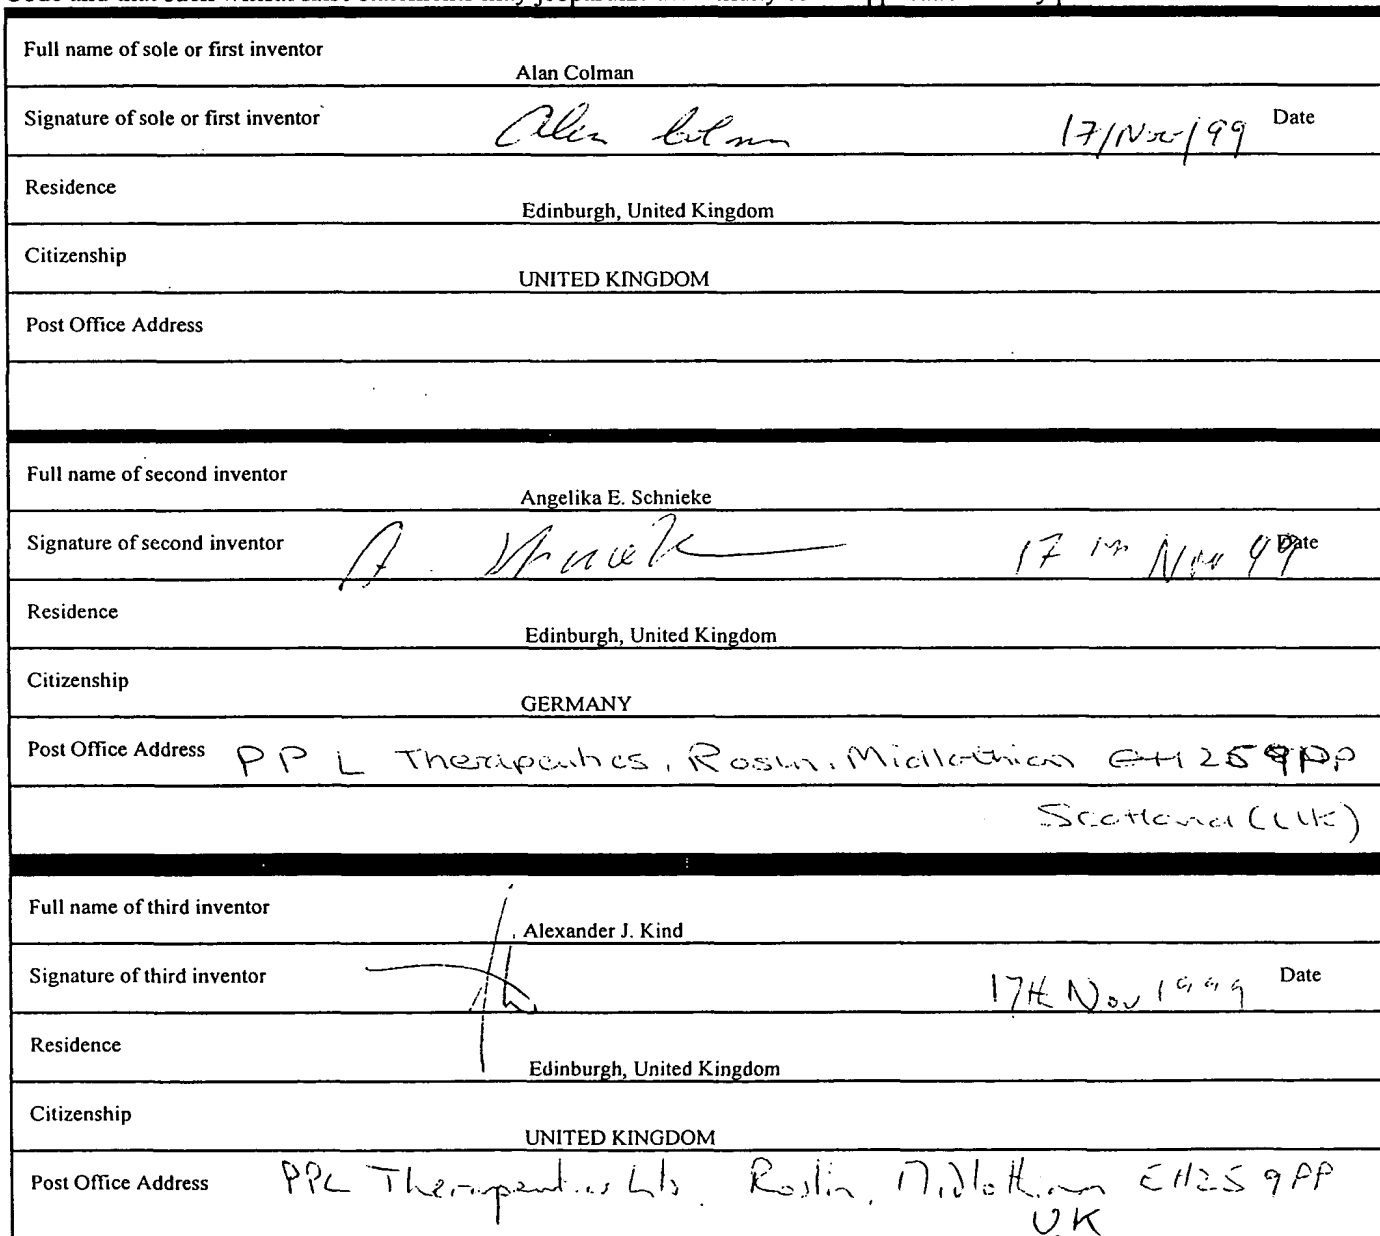 Full name of sole or first inventor
Alan Colman
Signature of sole or first inventor Alan Colman 17/Nov/99 Date
Residence
Edinburgh, United Kingdom
Citizenship
UNITED KINGDOM
Post Office Address
Full name of second inventor
Angelika E. Schnieke
Signature of second inventor A. Schnieke 17 th Nov 99 Date
Residence
Edinburgh, United Kingdom
Citizenship
GERMANY
Post Office Address PPL Therapeutics, Roslin, Midlothian EH25 9PP
Scotland (UK)
Full name of third inventor
Alexander J. Kind
Signature of third inventor 17th Nov 1999 Date
Residence
Edinburgh, United Kingdom
Citizenship
UNITED KINGDOM
Post Office Address PPL Therapeutics Roslin, Midlothian EH25 9PP
UK